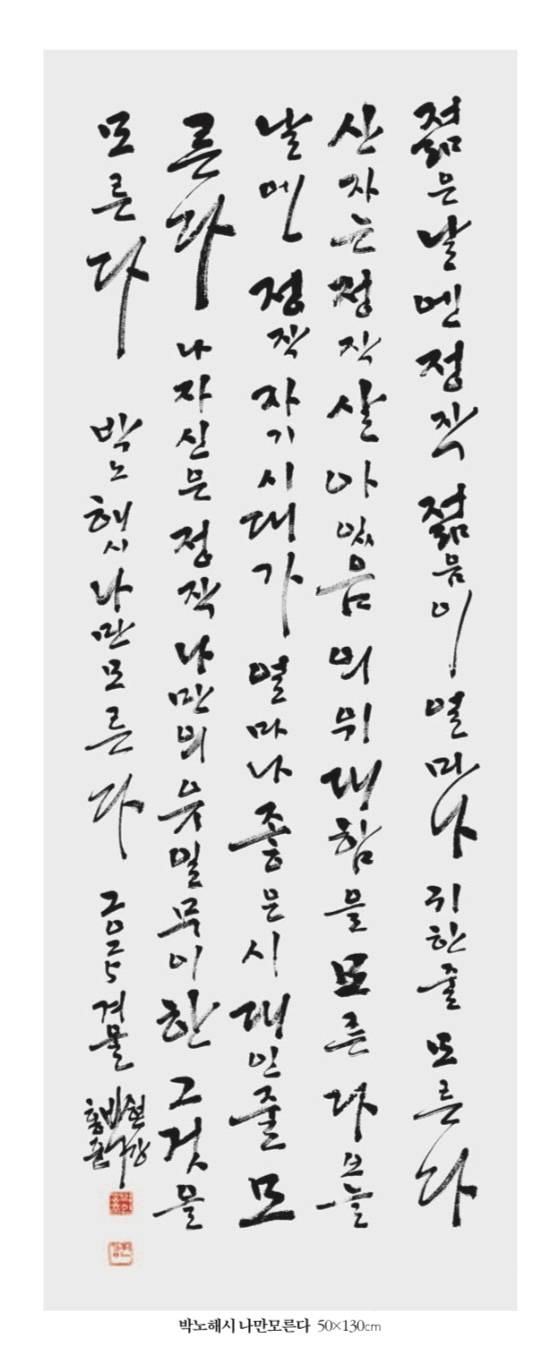 젊은날엔정작 젊음이 얼마나 귀한줄 모른다
산자는정작살아있음의위대함을 모른다 오늘
날엔 정작 자기시대가 얼마나 좋은시대인줄 모
른다 나자신은 정작 나만의 유일무이한 그것을
모른다 박노해시 나만모른다 2025 겨울 현강 박홍준
박노해시 나만모른다 50×130cm